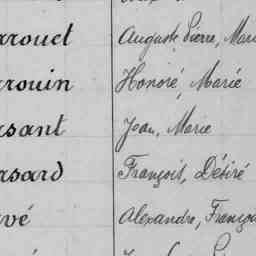 rrouet Auguste, Pierre, Mari
rrouin Honoré, Marie
rsant Jean, Marie
rsard François, Désiré
rvé Alexandre, Françoi